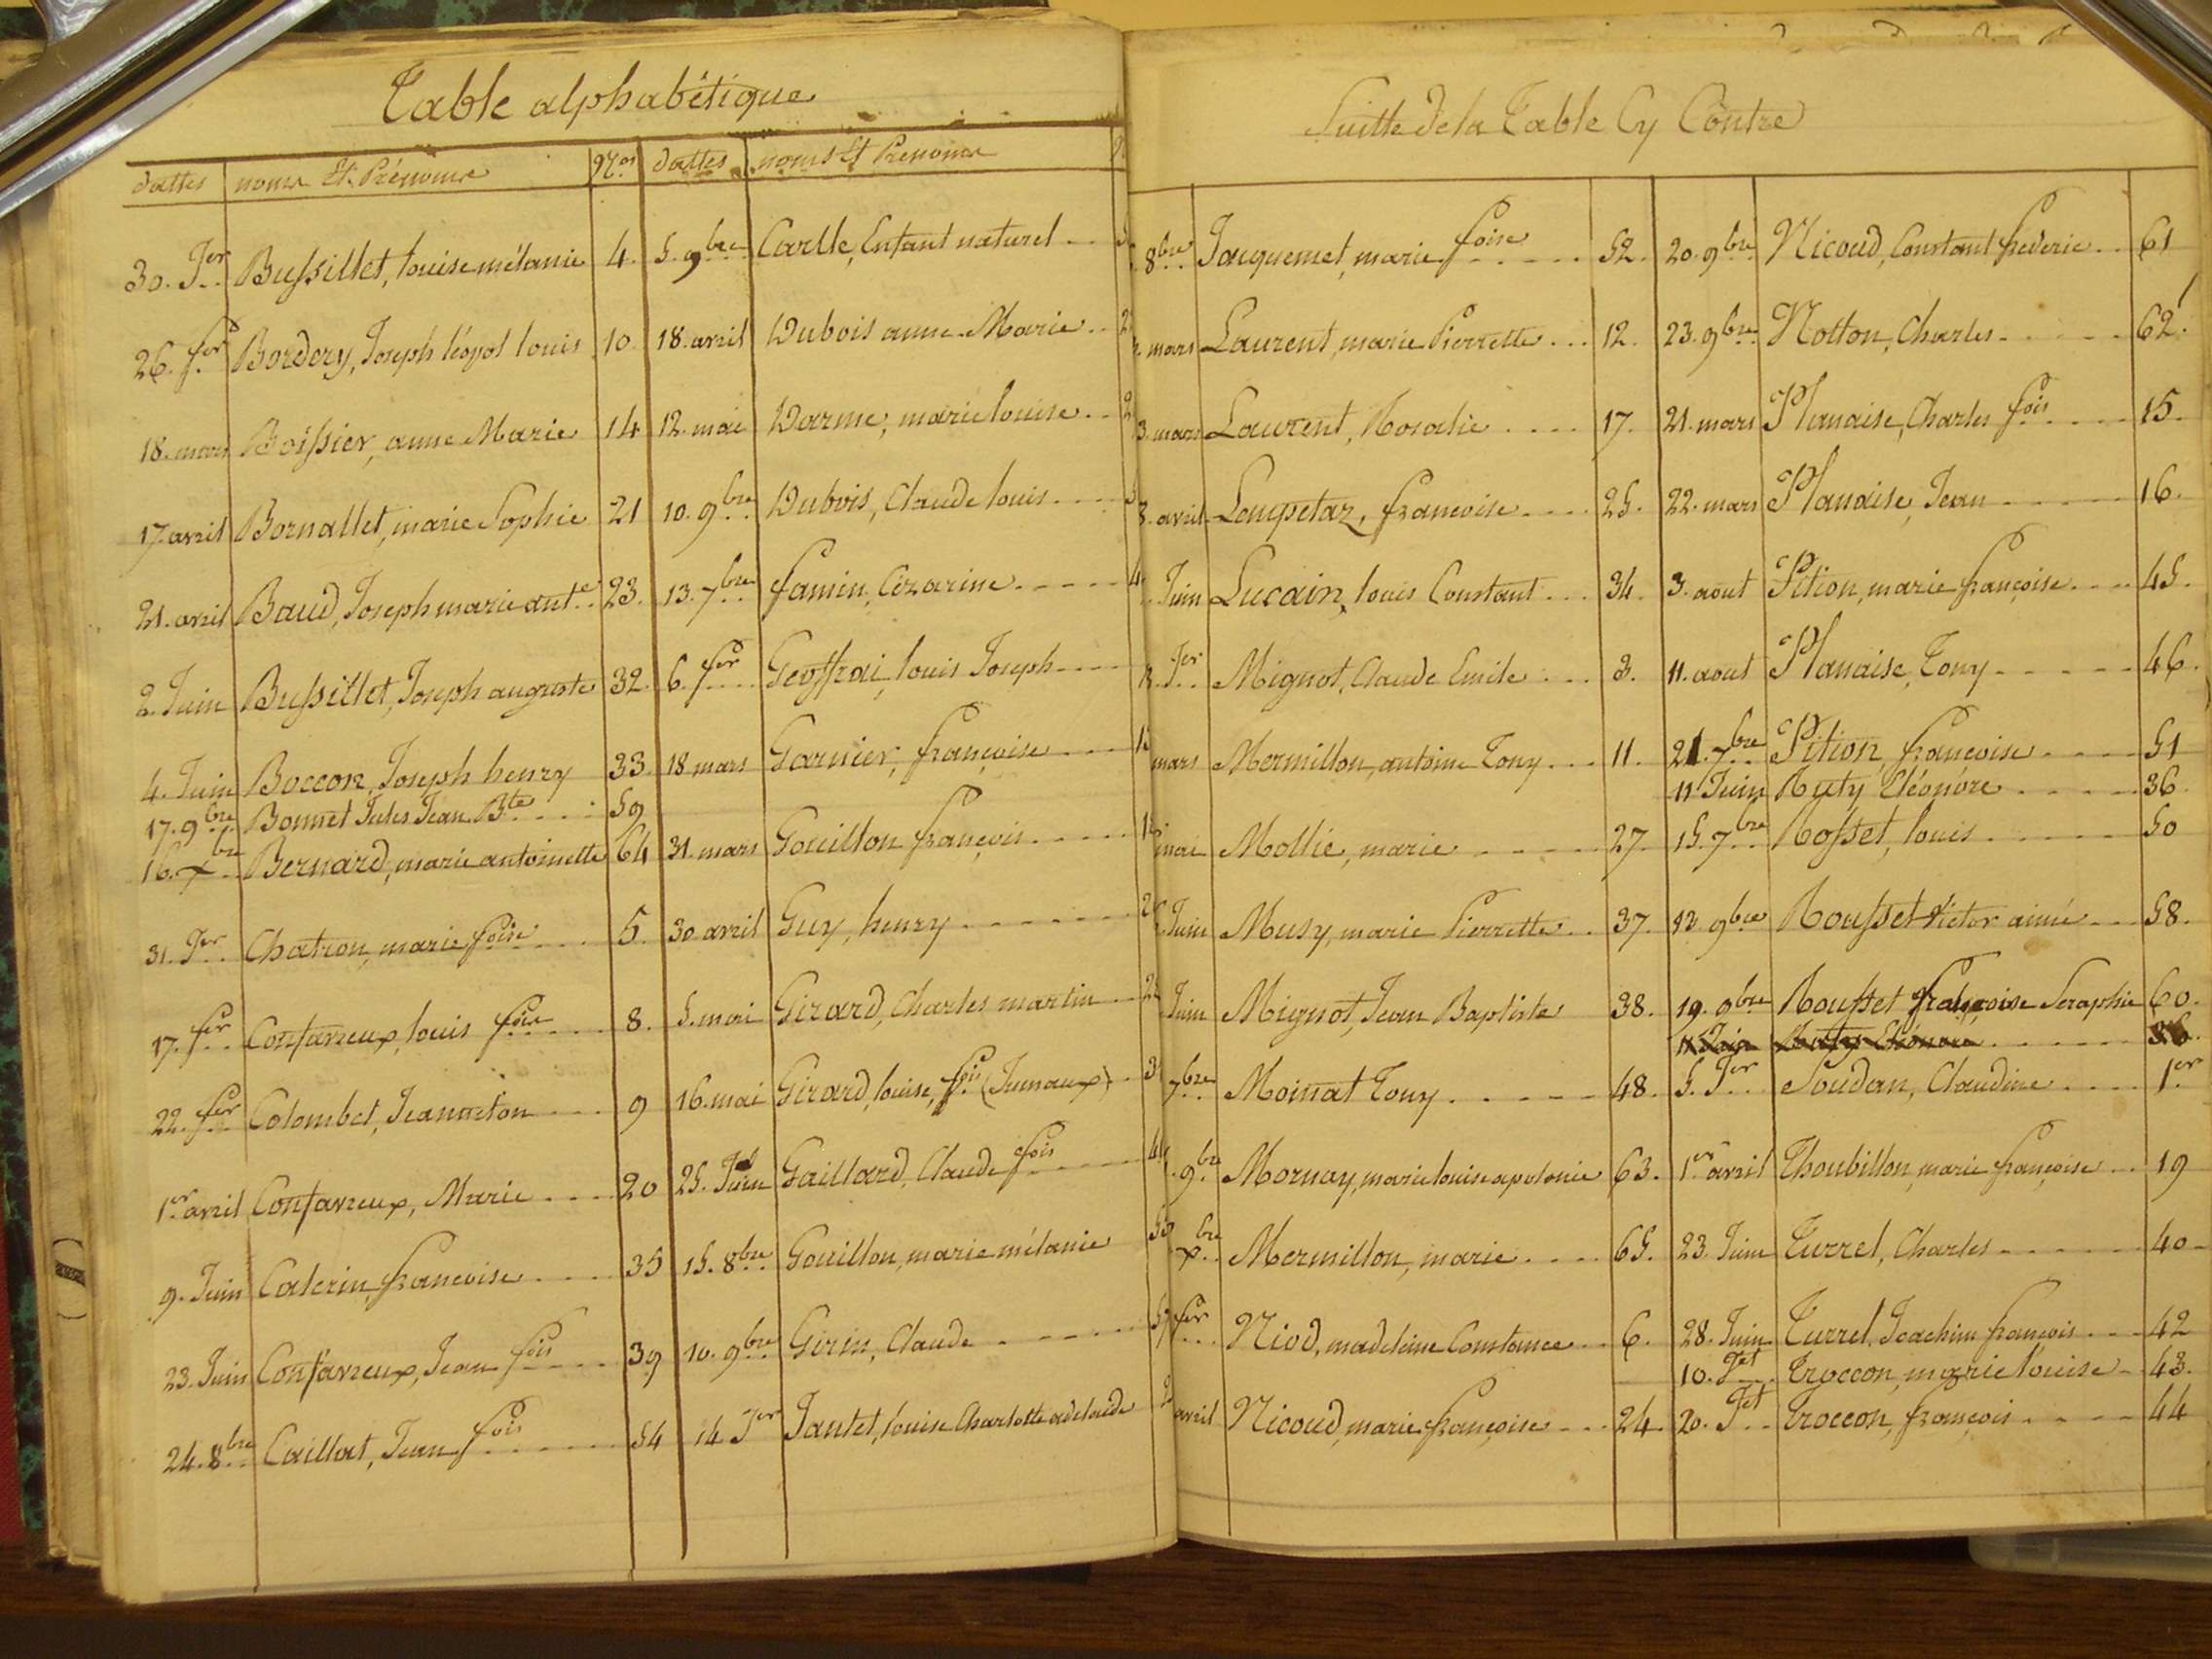 Table alphabétique
dattes noms Et Prénoms Nos dattes noms Et Prenoms
30. Jer Bussillet, louise mélanie 4. 5. 9bre Carlle, Enfant naturel
26. fer Bordery, Joseph léopol louis 10 18. avril Dubois anne Marie
18. mars Boissier, anne Marie 14 12. mai Darme, marie louise
17. avril Bornallet, marie Sophie 21 10. 9bre Dubois, Claude louis
21. avril Baud, Joseph marie ante 23. 13. 7bre famin, Cezarine
2. Juin Bussillet, Joseph auguste 32. 6. fer Geoffrai, louis Joseph
4. Juin Boccon, Joseph henry 33. 18 mars Garnier, françoise
17. 9bre Bonnet Jules Jean Bte 59
16. xbre Bernard, marie antoinette 64 31. mars Gouillon françois
31. Jer Chatron, marie foise 5. 30 avril Guy, henry
17. fer Confavreux, louis fois 8. 5. mai Girard, Charles martin
22. fer Colombet, Jeanneton 9 16. mai Girard, louise, fois (Jumaux)
1er avril Confavreux, Marie 20 25. Juin Gaillard, Claude fois
9. Juin Caterin, francoise 35 15. 8bre Gouillon, marie mélanie
23. Juin Confavreux, Jean fois 39 10. 9bre Girin, Claude
24. 8bre Caillat, Jean fois 54 14 Jer Jantet, louise Charlotte adelaide
Suitte de la Table Cy Contre
8bre Jacquemet, marie foise 52. 20. 9bre Nicoud, Constant frederic 61
mars Laurent, marie Pierrette 12. 23. 9bre Notton, Charles 62.
3. mars Laurent, Rosalie 17. 21. mars Planaise, Charles fois 15.
avril Loupetaz, francoise 25. 22. mars Planaise, Jean 16.
Juin Lucain, louis Constant 34. 3. aout Pition, marie françoise 45.
Jer Mignot, Claude Emile 3. 11. aout Planaise, Tony 46.
mars Mermillon, antoine Tony 11. 21. 7bre Pition, françoise 51
11 Juin Ruty Eléonore 36.
mai Mollié, marie 27. 15. 7bre Rosset, louis 50
Juin Musy, marie Pierrette 37. 13. 9bre Rousset Victor aimé 58.
Juin Mignot, Jean Baptiste 38. 19. 9bre Rousset françoise Seraphie 60.
11 Juin Ruty Eléonore 36.
7bre Moinat Tony 48. 5. Jer Soudan, Claudine 1er
9bre Mornay, marie louise apolonie 63. 1er avril Thoubillon, marie françoise 19
xbre Mermillon, marie 65. 23. Juin Turrel, Charles 40
fer Niod, madeleine Constance 6. 28. Juin Turrel, Joachim françois 42
10. Jet Troccon, marie louise 43.
avril Nicoud, marie françoise 24. 20. Jet Troccon, françois 44